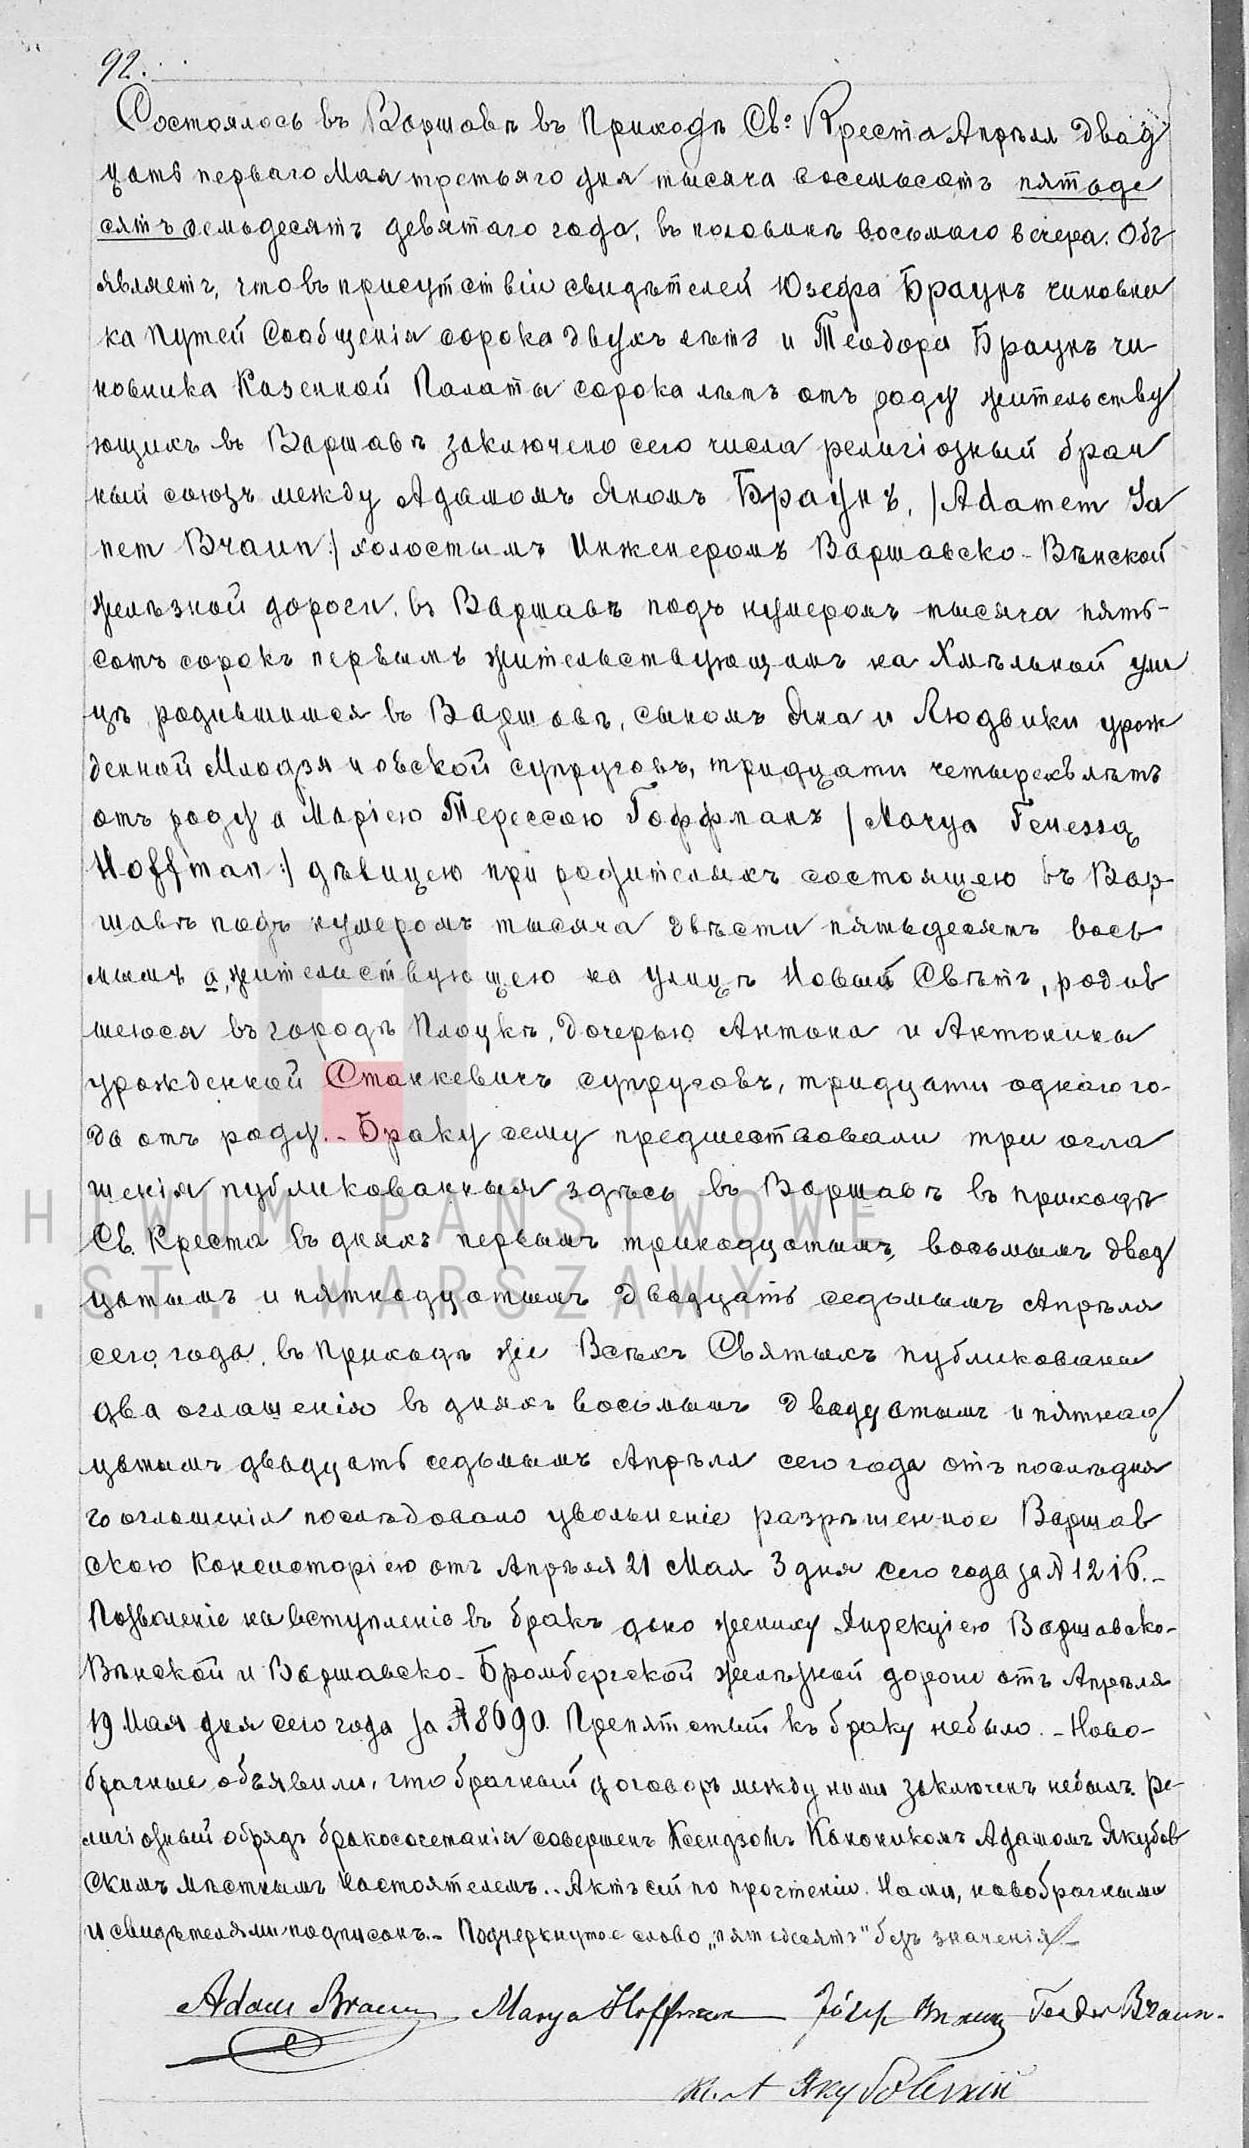 92.
Состоялось въ Варшавѣ въ Приходѣ Св. Креста Апрѣля двад
цать перваго Мая третьяго дня тысяча восемьсотъ пятьде
сятъ семьдесятъ девятаго года, въ половинѣ восьмаго вечера. Объ
являетъ, что въ присутствіи свидѣтелей Юзефа Браунъ чиновни
ка Путей Сообщенія сорока двухъ лѣтъ и Теодора Браунъ чи
новника Казенной Палаты сорока лѣтъ отъ роду жительству
ющихъ въ Варшавѣ заключено сего числа религіозный брач
ный союзъ между Адамомъ Яномъ Браунъ, /Adamem Ja
nem Braun:/ холостымъ Инженеромъ Варшавско-Вѣнской
желѣзной дороги, въ Варшавѣ подъ нумеромъ тысяча пять-
сотъ сорокъ первымъ жительствующимъ на Хмѣльной ули
цѣ родившимся въ Варшавѣ, сыномъ Яна и Людвики урож
денной Млодзяновской супруговъ, тридцати четырехъ лѣтъ
отъ роду а Маріею Терессою Гоффманъ /Marya Teressą
Hoffman:/ дѣвицею при родителяхъ состоящею въ Вар
шавѣ подъ нумеромъ тысяча двѣсти пятьдесятъ вось
мымъ а, жительствующею на улицѣ Новый Свѣтъ, родив
шеюся въ городѣ Плоцкѣ, дочерью Антона и Антонины
урожденной Станкевичъ супруговъ, тридцати одного го-
да отъ роду.- Браку сему предшествовали три огла
шенія публикованныя здѣсь въ Варшавѣ въ приходѣ
Св. Креста въ дняхъ первымъ тринадцатымъ, восьмымъ двад
цатымъ и пятнадцатымъ двадцать седьмымъ Апрѣля
сего года, въ Приходѣ же Всѣхъ Святыхъ публикованы
два оглашенія въ дняхъ восьмымъ двадцатымъ и пятнад
цатымъ двадцать седьмымъ Апрѣля сего года отъ послѣдня
го оглашенія послѣдовало увольненіе разрѣшенное Варшав
скою Консисторіею отъ Апрѣля 21 Мая 3 дня сего года за №
Позволеніе на вступленіе въ бракъ дано жениху Дирекціею Варшавско-
Вѣнской и Варшавско-Бромбергской желѣзной дороги отъ Апрѣля
19 Мая дня сего года за № 8690. Препятствій къ браку небыло.- Ново-
брачные объявили, что брачный договоръ между ними заключенъ небылъ. Ре-
лигіозный обрядъ бракосочетанія совершенъ Ксендзомъ Каноникомъ Адамомъ Якубов
скимъ мѣстнымъ Настоятелемъ.. Актъ сей по прочтеніи. Нами, новобрачными
и свидѣтелями подписанъ.- Подчеркнутое слово „пятьдесятъ" безъ значенія.-
Adam Braun Marya Hoffman Józef Braun Teodor Braun.
Якубовскій
ARCHIWUM PAŃSTWOWE
M.ST. WARSZAWY